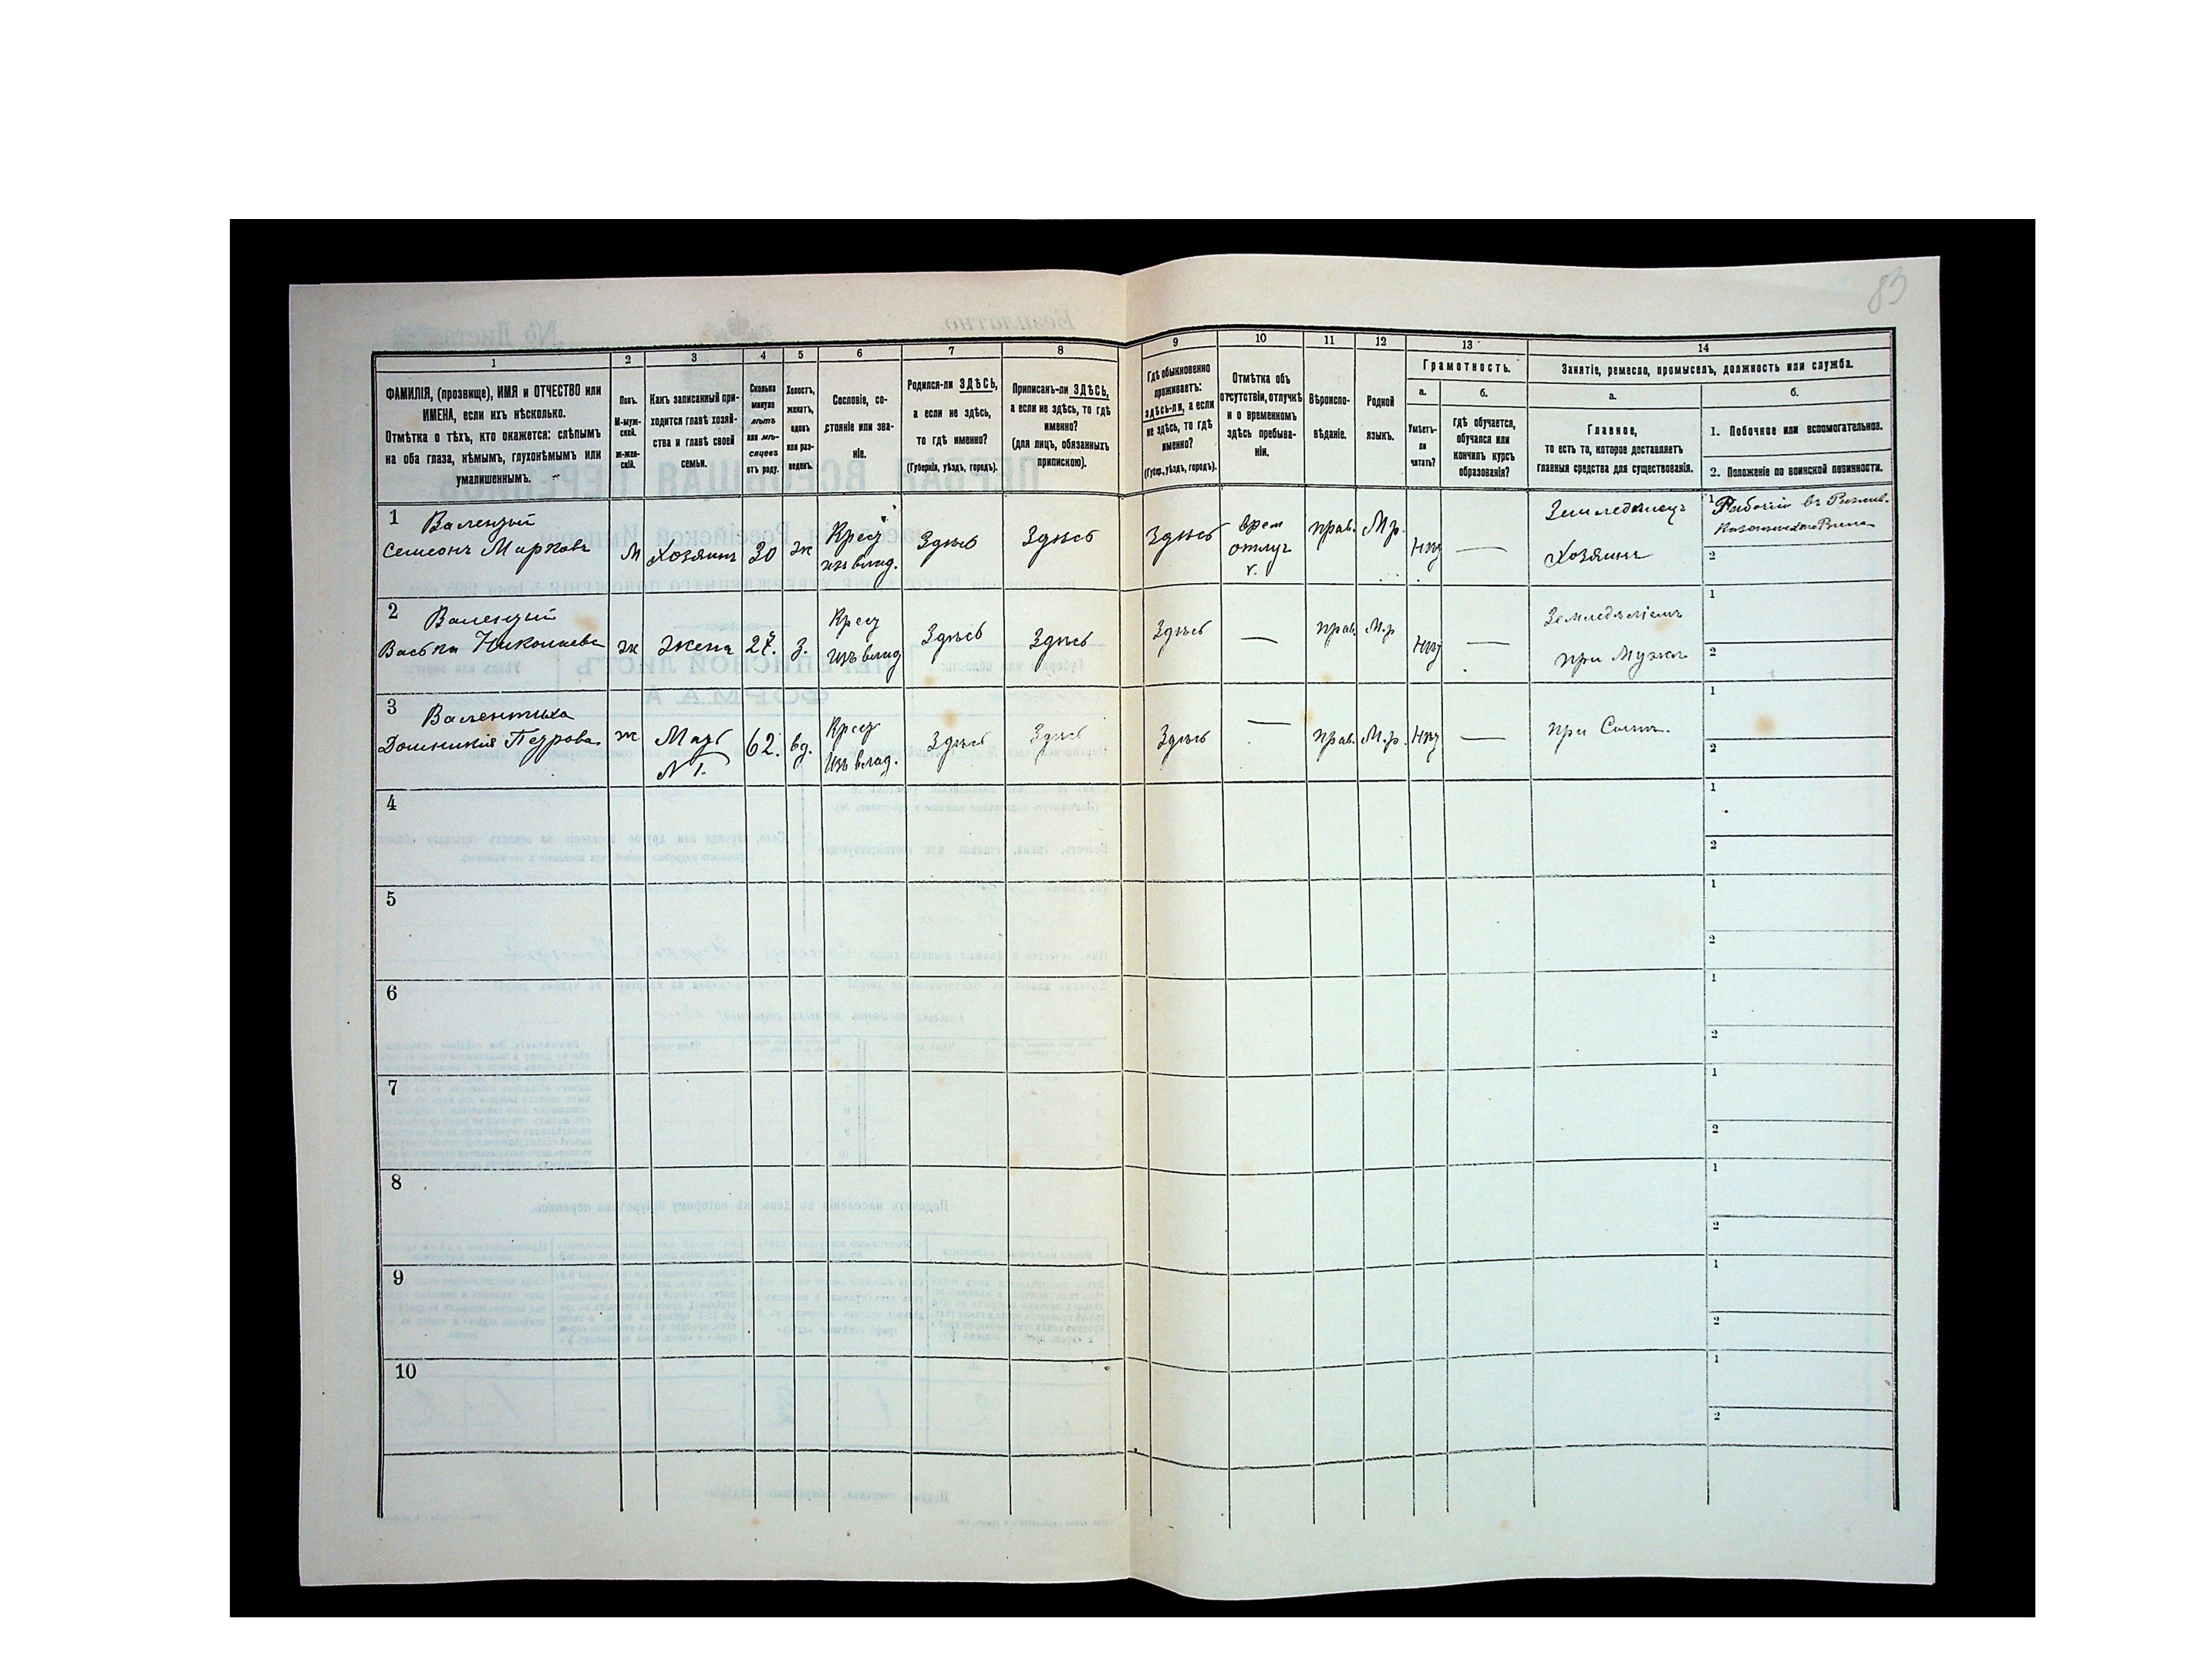 83
1 2 3 4 5 6 7 8 9 10 11 12 13 14
ФАМИЛІЯ, (прозвище), ИМЯ и ОТЧЕСТВО или
ИМЕНА, если ихъ нѣсколько.
Отмѣтка о тѣхъ, кто окажется: слѣпымъ
на оба глаза, нѣмымъ, глухонѣмымъ или
умалишеннымъ.
Полъ.
М-муж-
ской.
Ж-жен-
скій.
Какъ записанный при-
ходится главѣ хозяй-
ства и главѣ своей
семьи.
Сколько
минуло
лѣтъ
или мѣ-
сяцевъ
отъ роду.
Холостъ,
женатъ,
вдовъ
или раз-
веденъ.
Сословіе, со-
стояніе или зва-
ніе.
Родился-ли ЗДѢСЬ,
а если не здѣсь,
то гдѣ именно?
(Губернія, уѣздъ, городъ).
Приписанъ-ли ЗДѢСЬ,
а если не здѣсь, то гдѣ
именно?
(для лицъ, обязанныхъ
припискою).
Гдѣ обыкновенно
проживаетъ:
здѣсь-ли, а если
не здѣсь, то гдѣ
именно?
(Губер., уѣздъ, городъ).
Отмѣтка объ
отсутствіи, отлучкѣ
и о временномъ
здѣсь пребыва-
ніи.
Вѣроиспо-
вѣданіе.
Родной
языкъ.
Грамотность.
а.
Умѣетъ-
ли
читать?
б.
Гдѣ обучается,
обучался или
кончилъ курсъ
образованія?
Занятіе, ремесло, промыселъ, должность или служба.
а.
Главное,
то есть то, которое доставляетъ
главныя средства для существованія.
б.
1. Побочное или вспомогательное.
2. Положеніе по воинской повинности.
1 Валентый
Семеонъ Марковъ
М
Хозяинъ
30
ж
Крест
изъ влад.
Здѣсь
Здѣсь
Здѣсь
врем
отлуч
прав.
Мр.
Нѣт
—
Земледѣлецъ
Хозяинъ
1 Рабочій въ
2
2 Валентый
Васька Николаева
ж
Жена
27.
з.
Крест
изъ влад
Здѣсь
Здѣсь
Здѣсь
—
прав.
М.р
Нѣт
—
Земледѣліемъ
при Мужѣ
1
2
3 Валентыха
Домникія Петрова
ж
Мать
N 1.
62.
вд.
Крест
изъ влад.
Здѣсь
Здѣсь
Здѣсь
—
прав.
М.р.
Нѣт
—
при Сынѣ.
1
2
4
1
2
5
1
2
6
1
2
7
1
2
8
1
2
9
1
2
10
1
2